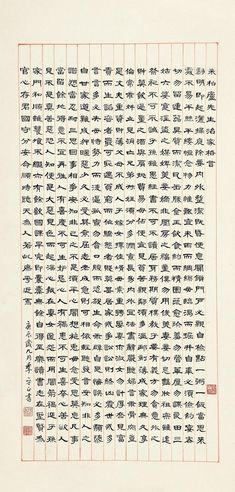 朱柏廬先生治家格言
黎明即起灑掃庭除要內外整潔既昏便息關鎖門戶必親自檢點一粥一飯當思來
處不易半絲半縷恆念物力維艱宜未雨而綢繆毋臨渴而掘井自奉必須儉約宴客
切勿留連器具質而潔瓦缶勝金玉飲食約而精園蔬愈珍饈勿營華屋勿謀良田三
姑六婆實淫盜之媒婢美妾嬌非閨房之福奴僕勿用俊美妻妾切忌豔妝祖宗雖遠
祭祀不可不誠子孫雖愚經書不可不讀居身務期質樸教子要有義方勿貪意外之
財勿飲過量之酒與肩挑貿易毋佔便宜見貧苦親鄰須加溫恤刻薄成家理無久享
倫常乖舛立見消亡兄弟叔姪須分多潤寡長幼內外宜法肅辭嚴聽婦言乖骨肉豈
是丈夫重資財薄父母不成人子嫁女擇佳婿毋索重聘娶媳求淑女勿計厚奩見富
貴而生諂容者最可恥遇貧窮而作驕態者賤莫甚居家戒爭訟訟則終凶處世戒多
言言多必失毋恃勢力而凌逼孤寡勿貪口腹而恣殺生禽乖僻自是悔誤必多頹惰
自甘家道難成狎暱惡少久必受其累屈志老成急則可相依輕聽發言安知非人之
譖訴當忍耐三思因事相爭安知非我之不是須平心暗想施惠毋念受恩莫忘凡事
當留餘地得意不宜再往人有喜慶不可生妒忌心人有禍患不可生喜幸心善欲人
見不是真善惡恐人知便是大惡見色而起淫心報在妻女匿怨而用暗箭禍延子孫
家門和順雖饔飧不繼亦有餘歡國課早完即囊橐無餘自得至樂讀書志在聖賢為
官心存君國守分安命順時聽天為人若此庶乎近焉